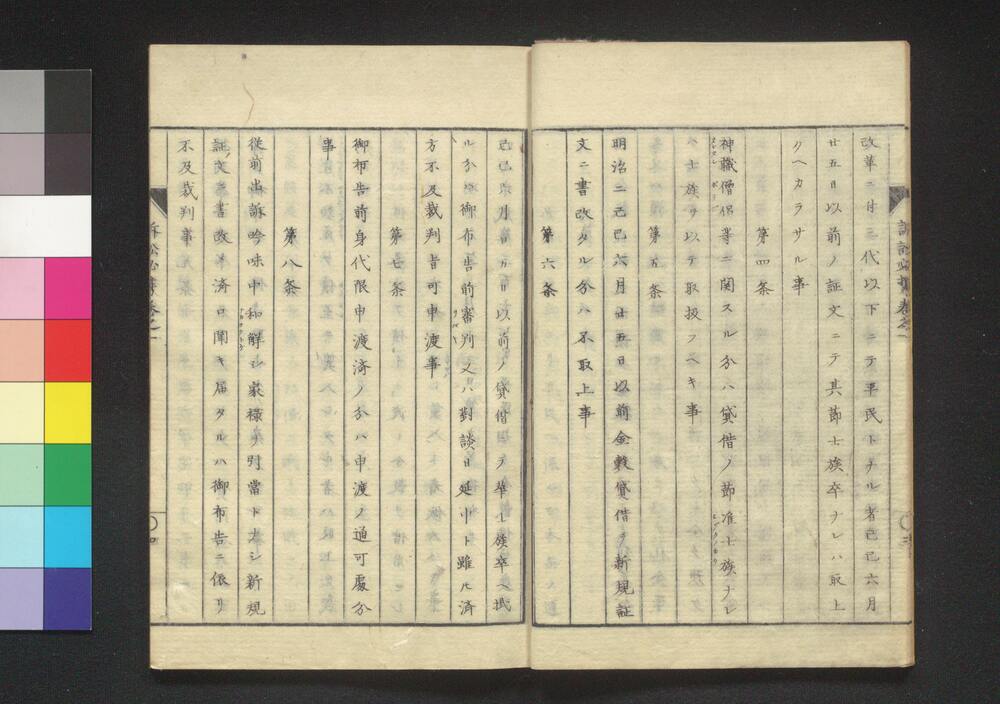 改革ニ付三代以下ニテ平民トナル者己巳六月
廿五日以前ノ証文ニテ其節士族卒ナレハ取上
クヘカラサル事
第四条
神職僧侶等ニ関スル分ハ貸借ノ節准士族ナレ
ハ士族ヲ以テ取扱フヘキ事
第五条
明治二己巳六月廿五日以前金穀貸借ヲ新規証
文ニ書改タル分ハ不取上事
第六条
己巳六月廿五日以前ノ貸借ニテ華士族卒ヘ抵
ル分ハ御布告前審判又ハ対談日延中ト雖モ済
方不及裁判旨可申渡事
第七条
御布告前身代限申渡済ノ分ハ申渡ノ通可処分
事
第八条
従前出訴吟味中和解シ家禄ヲ引当トナシ新規
証文ヘ書改メ済口聞キ届タルハ御布告ニ依リ
不及裁判事
訴訟必携巻之一